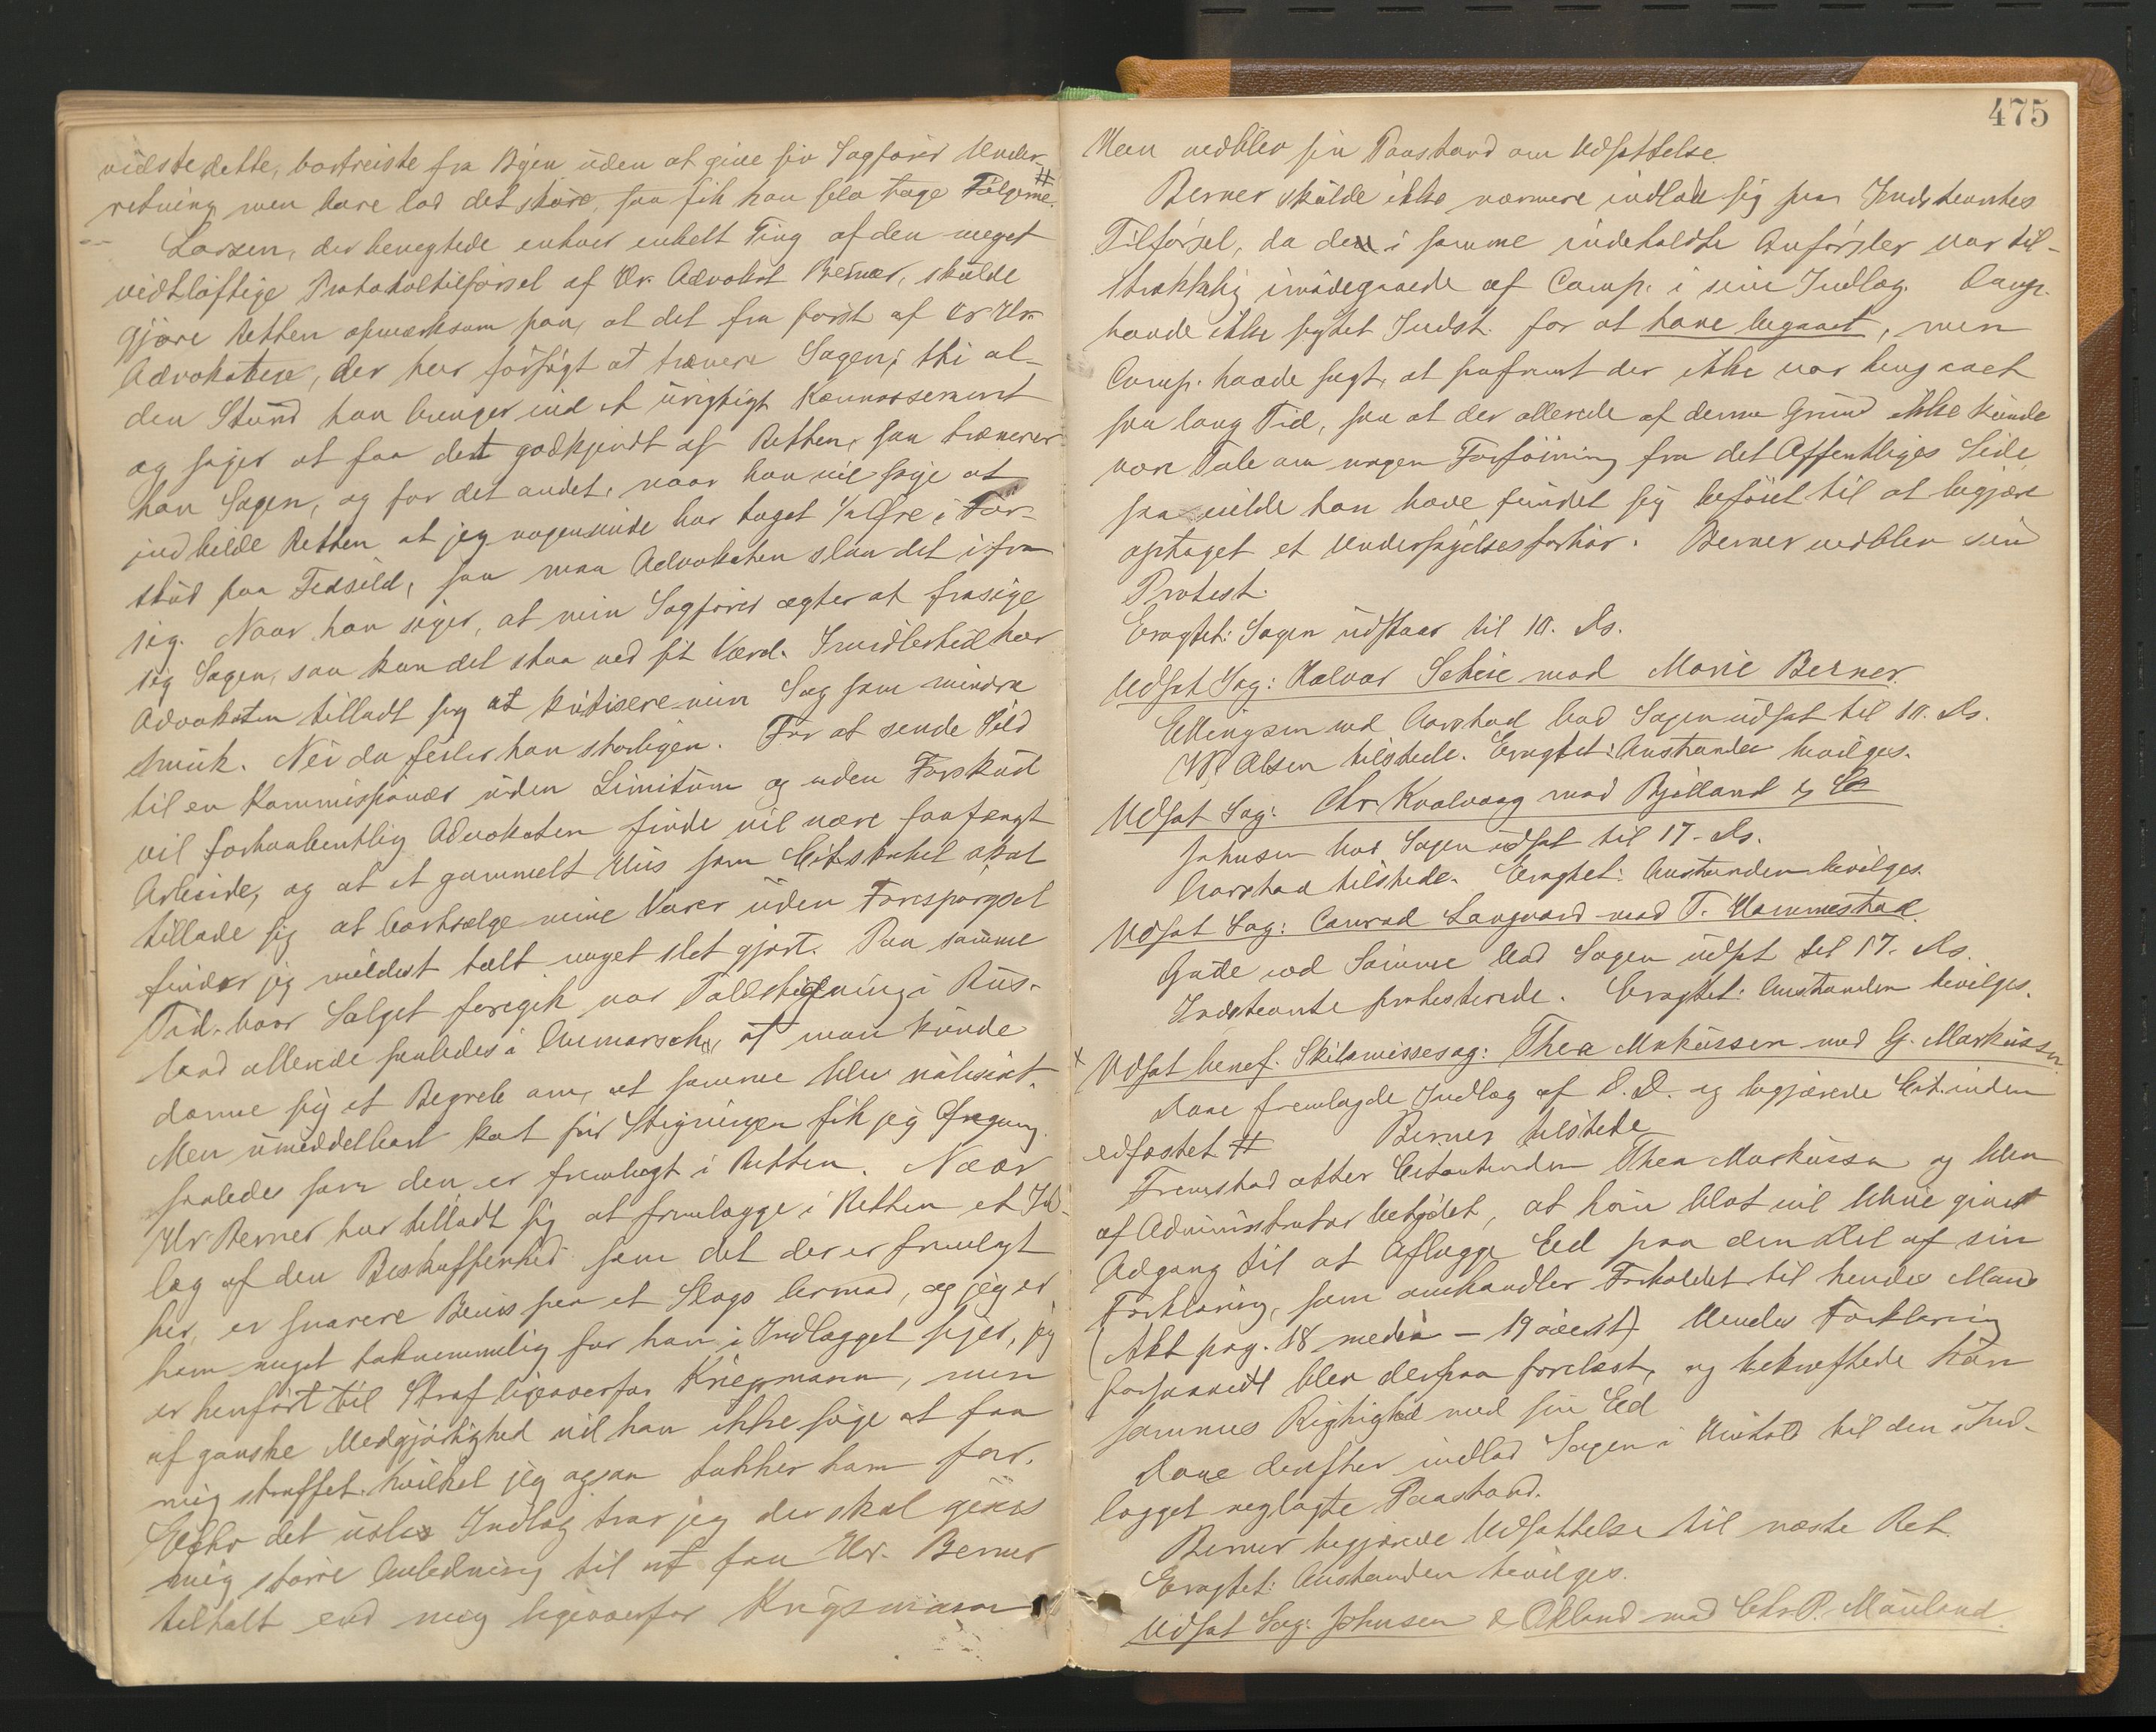 vidste dette, bortreiste fra Byen uden at give sin Sagfører Under-
retning men bare lod det skure, saa fik han selv tage Følgerne. #
Larsen, der benegtede enhver enkelt Ting af den meget
vidtløftige Protokoltilførsel af Hr. Advokat Berner, skulde
gjøre Retten opmærksom paa, at det fra først af er Hr.
Advokaten, der har forsøgt at trænere Sagen; thi al-
den Stund han bringer ind et urigtigt Konnossement
og søger at faa det godkjendt af Retten, saa trænerer
han Sagen, og for det andet, naar han vil søge at
indbilde Retten at jeg nogensinde har taget 1/2 Øre i For-
skud paa Fedsild, saa maa Advokaten slaa det ifra
sig. Naar han siger, at min Sagfører agter at frasige
sig Sagen, saa kan det staa ved sit Værd. Imidlertid har
Advokaten tilladt sig at kritisere min Sag som mindre
smuk. Nei da feiler han storligen. For at sende Sild
til en Kommissionær uden Limitum og uden Forskud
vil forhaabentlig Advokaten finde vil være faafengt
Arbeide, og at et gammelt Hus som Citskabet skal
tillade sig at bortsælge mine Varer uden Forespørgsel
finder jeg mildest talt noget slet gjort. Paa samme
Tid hvor Salget foregik var Toldstigning i Rus-
land allerede saaledes i Anmarsch, at man kunde
danne sig et Begreb om, at samme blev realiseret.
Men umiddelbart kort før Stigningen fik jeg
saaledes som den er fremlagt i Retten. Naar
Hr Berner har tilladt sig at fremlægge i Retten et Ind-
læg af den Beskaffenhed som det der er fremlagt
her, er snarere Bevis paa et Slags Armod, og jeg er
ham meget taknemmelig for han i Indlægget siger, jeg
er henført til Straf ligeoverfor Kriegsmann, men
af ganske Medgjørlighed vil han ikke søge at faa
mig straffet, hvilket jeg ogsaa takker ham for.
Efter det usle Indlæg tror jeg der skal gives
mig større Anledning til at faa Hr. Berner
tiltalt end mig ligeoverfor Krigsmann
475
Man vedblev sin Paastand om Udsættelse.
Berner skulde ikke nærmere indlade sig paa Indstevntes
Tilførsel, da de i samme indeholdte Anførsler var til-
strækkelig imødegaaede af Comp. i sine Indlæg. Comp.
havde ikke sigtet Indst. for at have begaaet, men
Comp. havde sagt, at saafremt der ikke var hengaaet
saa lang Tid, saa at der allerede af denne Grund ikke kunde
være Tale om nogen Forføining fra det Offentliges Side
saa vilde han have fundet sig beføiet til at begjære
optaget et Undersøgelsesforhør. Berner vedblev sin
Protest.
Eragtet: Sagen udstaar til 10. ds.
Udsat Sag: Halvor Scheie mod Marie Berner.
Ellingsen ved Aarstad bad Sagen udsat til 10. ds.
W. Olsen tilstede. Eragtet: Anstanden bevilges.
Udsat Sag: Chr. Kvalvaag mod Bjelland & Co
Johnsen bad Sagen udsat til 17. ds.
Aarstad tilstede. Eragtet: Anstanden bevilges.
Udsat Sag: Conrad Langaard mod T. Hammestad.
Gude ved Samme bad Sagen udsat til 17. ds.
Indstevnte protesterede. Eragtet: Anstanden bevilges.
x Udsat benef. Skilsmissesag: Thea Makussen mod G. Markussen.
Dave fremlagde Indlæg af D. D. og begjærede Cit.inden
edfæstet # Berner tilstede
Fremstod atter Citantinden Thea Markussen og blev
af Administrator betydet, at hun blot vil blive givet
Adgang til at aflægge Ed paa den Del af sin
Forklaring, som omhandler Forholdet til hendes Mand
(Akt pag. 18 media – 19 øverst). Hendes Forklaring
forsaavidt blev derpaa forelæst, og bekræftede hun
sammes Rigtighed med sin Ed
Dave derefter indlod Sagen i Henhold til den i Ind-
lægget nedlagte Paastand.
Berner begjærede Udsættelse til næste Ret.
Eragtet: Anstanden bevilges.
Udsat Sag: Johnsen & Økland mod Chr. P. Mauland.